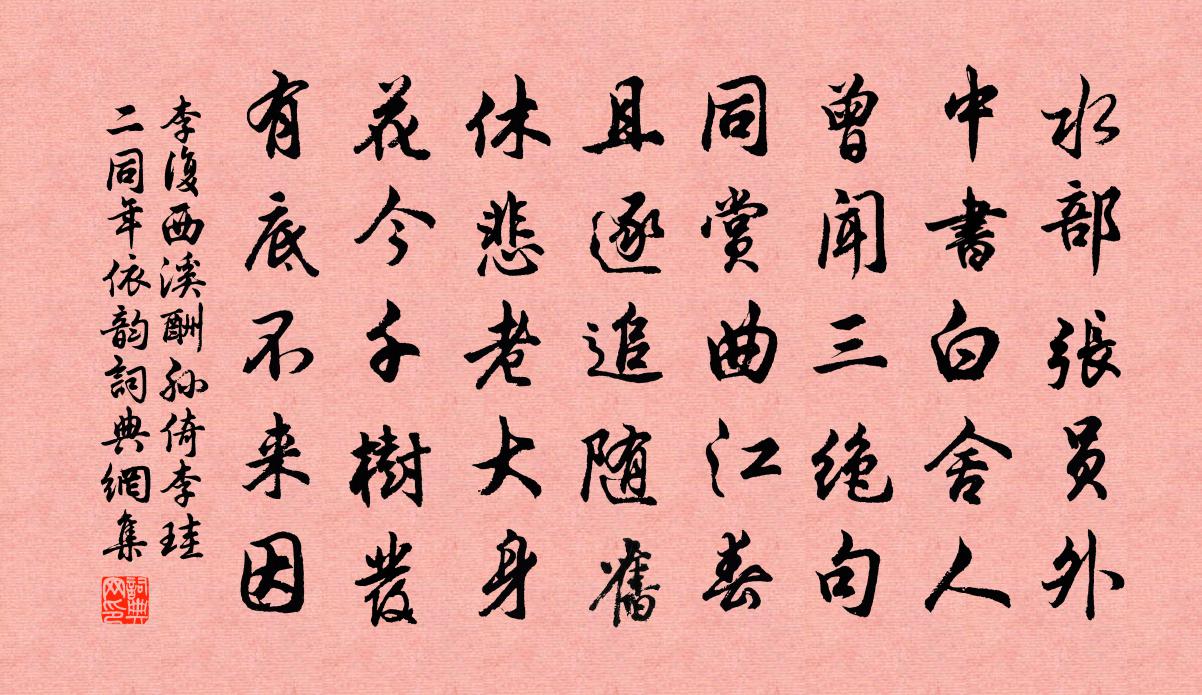 水部張员外
中書白舍人
曾聞三绝句
同賞曲江春
且逐追随舊
休悲老大身
花今千樹發
有底不来因
李復西溪酬孙倚李珪
二同年依韵詞典網集
詞典網印